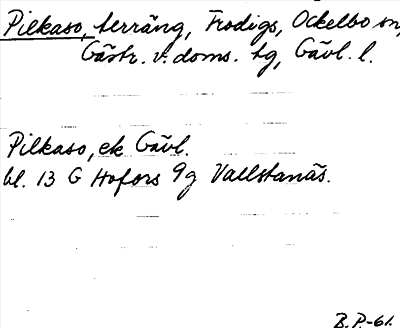 Pilkaso, terräng, Frodigs, Ockelbo sn,
Gästr. v. doms. tg, Gävl. l.
Pilkaso, ek Gävl.
bl. 13 G Hofors 9g Vallstanäs.
B.P.-61.